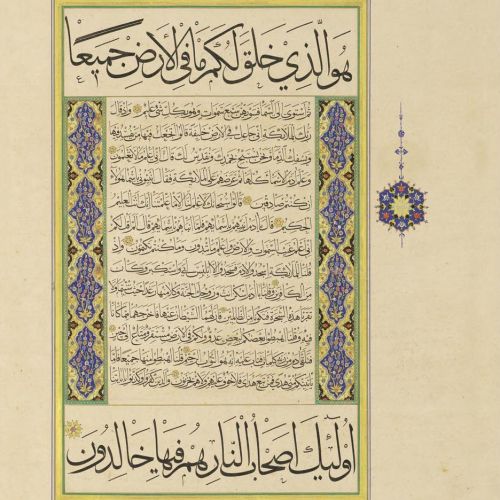 هُوَ الَّذِي خَلَقَ لَكُمْ مَا فِي الْأَرْضِ جَمِيعًا
ثم استوى إلى السماء فسويهن سبع سموات وهو بكل شيء عليم وإذ قال
ربك للملائكة إني جاعل في الأرض خليفة قالوا أتجعل فيها من يفسد فيها
ويسفك الدماء ونحن نسبح بحمدك ونقدس لك قال إني أعلم ما لا تعلمون
وعلم آدم الأسماء كلها ثم عرضهم على الملائكة فقال أنبئوني بأسماء هؤلاء
إن كنتم صادقين قالوا سبحانك لا علم لنا إلا ما علمتنا إنك أنت العليم
الحكيم قال يا آدم أنبئهم بأسمائهم فلما أنبأهم بأسمائهم قال ألم أقل لكم
إني أعلم غيب السموات والأرض وأعلم ما تبدون وما كنتم تكتمون وإذ
قلنا للملائكة اسجدوا لآدم فسجدوا إلا إبليس أبى واستكبر وكان
من الكافرين وقلنا يا آدم اسكن أنت وزوجك الجنة وكلا منها رغدا حيث شئتما ولا
تقربا هذه الشجرة فتكونا من الظالمين فأزلهما الشيطان عنها فأخرجهما مما كانا
فيه وقلنا اهبطوا بعضكم لبعض عدو ولكم في الأرض مستقر ومتاع إلى حين
فتلقى آدم من ربه كلمات فتاب عليه إنه هو التواب الرحيم قلنا اهبطوا منها جميعا فإما
يأتينكم مني هدى فمن تبع هداي فلا خوف عليهم ولا هم يحزنون والذين كفروا وكذبوا بآياتنا
أُولَٰئِكَ أَصْحَابُ النَّارِ هُمْ فِيهَا خَالِدُونَ